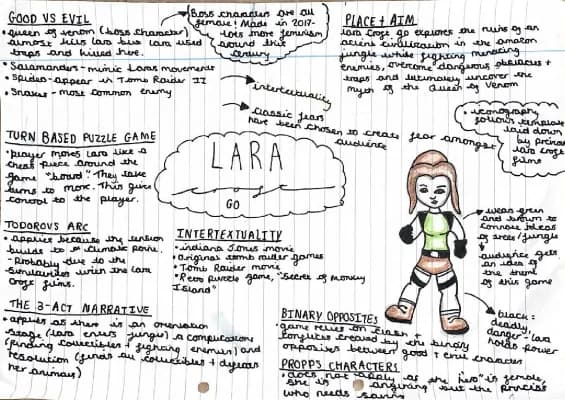 GOOD VS EVIL
• Queen of venom (boss character)
almost kills Lara but Lara used
traps and killed hers.
• Salamanders - mimic Laras movements
• Spiders - appear in Tomb Raider II
• Snakes - most common enemy
Boss characters are all
female! Made in 2017-
lots more feminism
around this
century
→ intertextuality
→ classic fears
have been chosen to create fear amongst
audience
PLACE + AIM
Lara Croft go explores the ruins of an
ancient civilization in the amazon
jungle while fighting menacing
enemies, overcome dangerous obstacles +
traps and ultimately uncover the
myth of the Queen of Venom
• iconography
follows template
laid down
by
Lara Croft
films
TURN BASED PUZZLE GAME
• player moves Lara like a
chess piece around the
game "board". They take
turns to move. This gives
control to the player.
LARA
croft
GO
TODOROVS ARC
• applies because the tension
builds to a climatic point.
- Probably due to the
similarities with the Lara
Croft films.
INTERTEXTUALITY
• indiana Jones movie
• original tomb raider games
• Tomb Raider movie
• Retro puzzle game, "Secret of Monkey
Island"
→ wears green
and brown to
connote ideas
of trees/jungle
↓
audience gets
an idea of
the theme
of this game
→ black =
deadly,
danger - Lara
holds power
THE 3-ACT NARRATIVE
• applies as there is an orientation
stage (Lara enters jungle) a complications
(finding collectibles + fighting enemies) and
resolution (finds all collectibles + defeats
her enemies)
BINARY OPPOSITES
• game relies on clash +
conflicts created by the binary
opposites between good + evil characters
PROPPS CHARACTERS
• does not apply as the "hero" is female,
she is anything but the princess
who needs saving